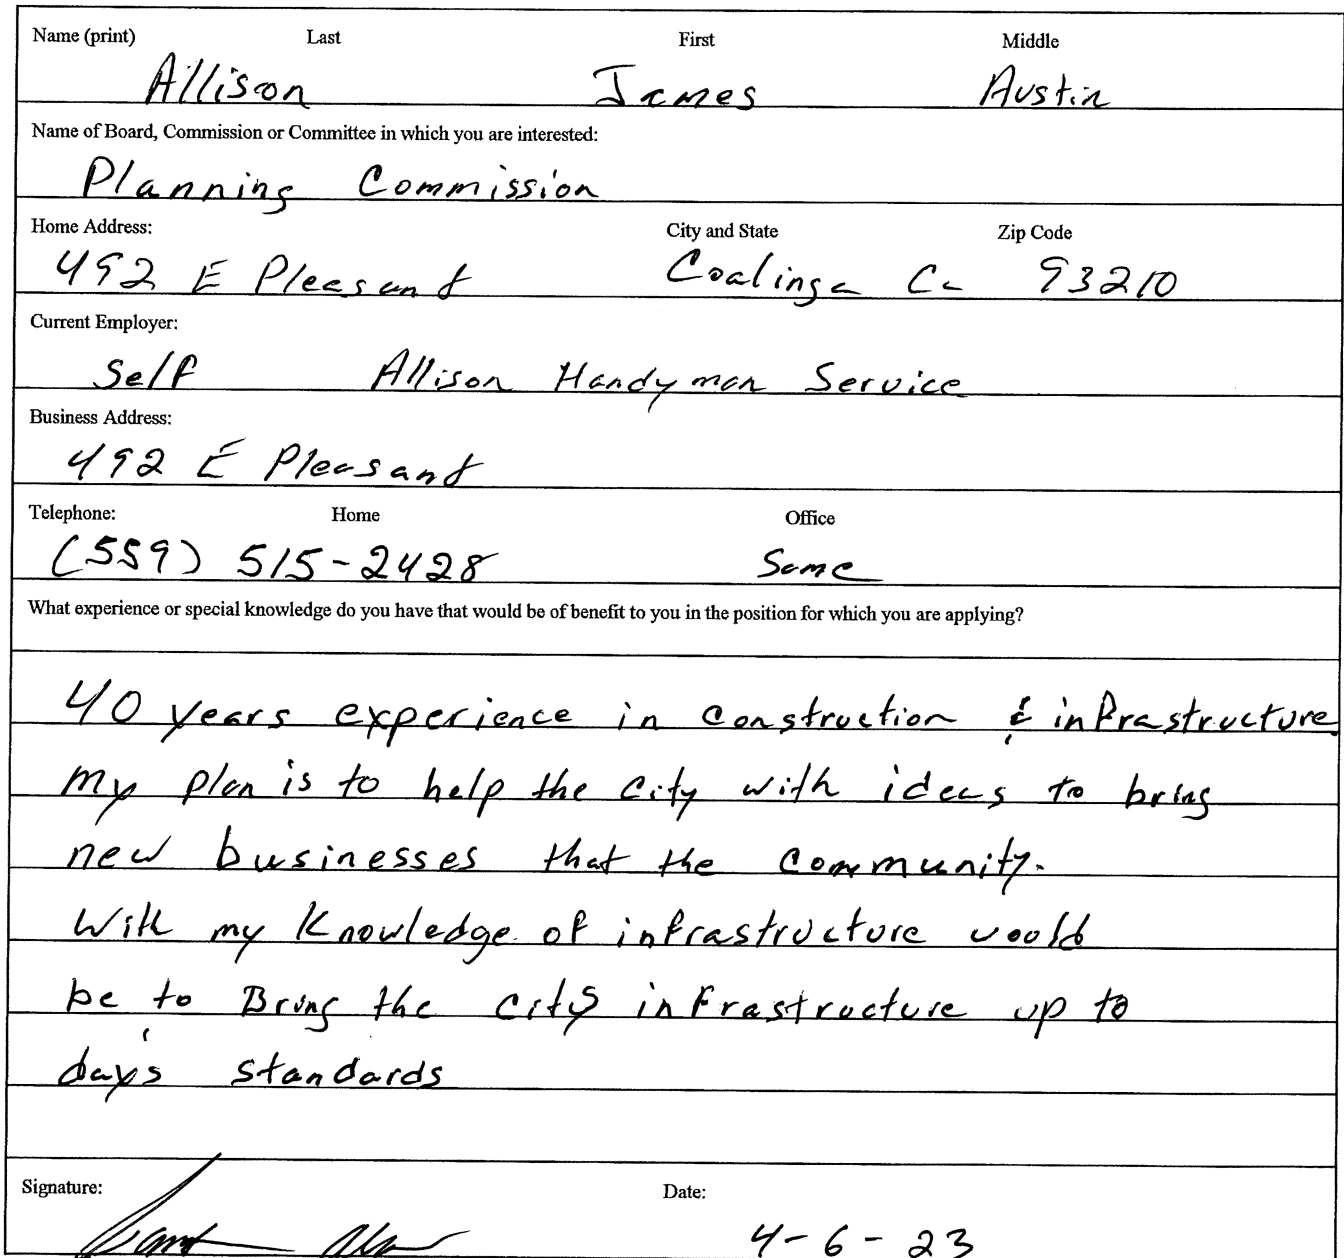 Name (print) Last First Middle
Allison James Austin
Name of Board, Commission or Committee in which you are interested:
Planning Commission
Home Address: City and State Zip Code
492 E Pleasant Coalinga Ca 93210
Current Employer:
Self Allison Handyman Service
Business Address:
492 E Pleasant
Telephone: Home Office
(559) 515-2428 Same
What experience or special knowledge do you have that would be of benefit to you in the position for which you are applying?
40 years experience in construction & infrastructure.
my plan is to help the city with ideas to bring
new businesses that the community.
With my Knowledge of infrastructure would
be to Bring the city infrastructure up to
day's standards
Signature: Date:
4-6-23